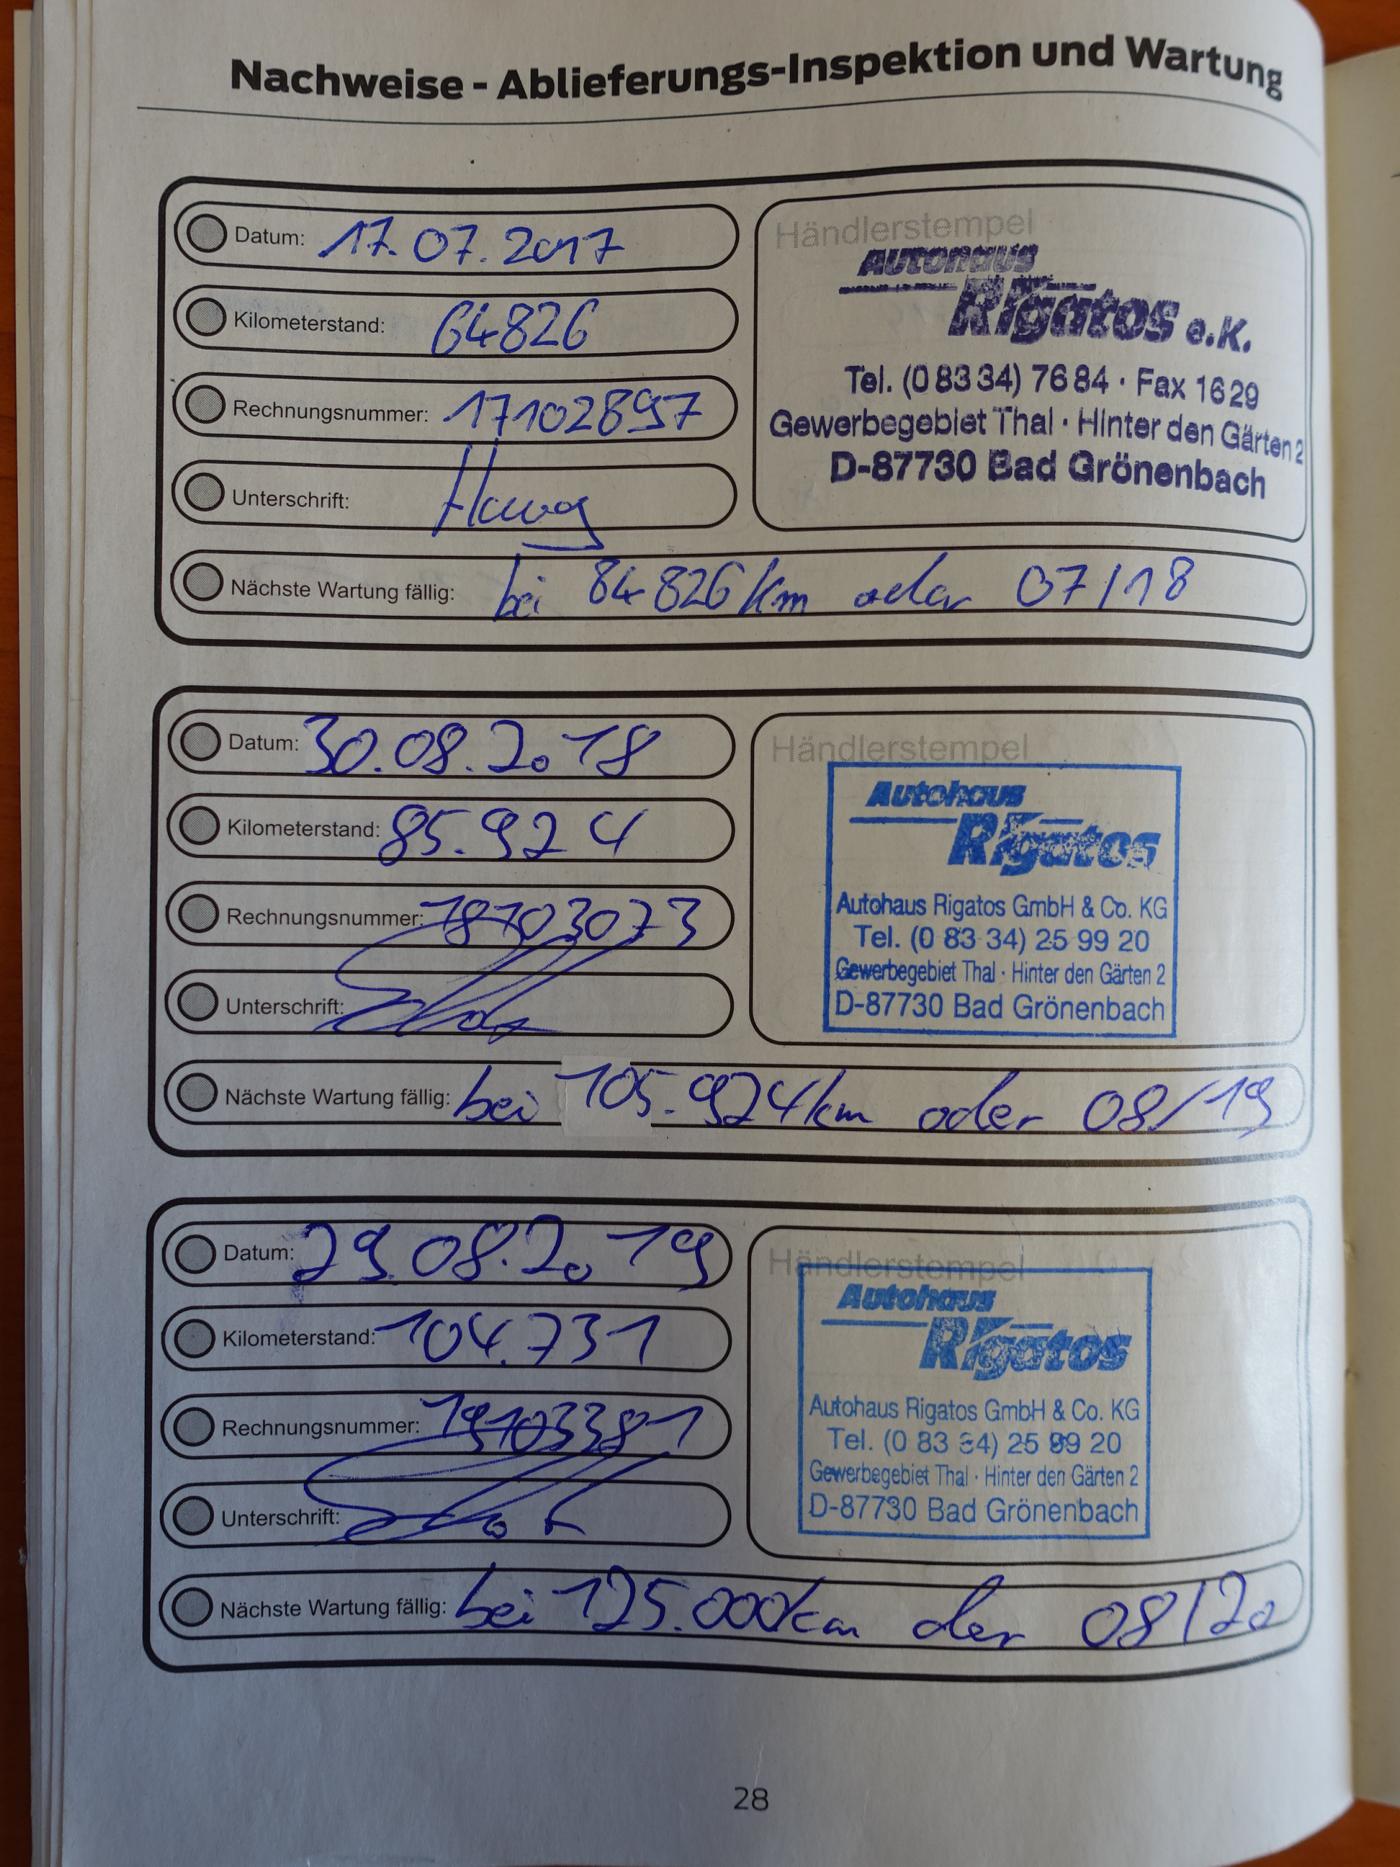 Nachweise - Ablieferungs-Inspektion und Wartung
Datum: 17.07.2017
Kilometerstand: 64826
Rechnungsnummer: 17102897
Unterschrift:
Nächste Wartung fällig: bei 84826 km oder 07/18
Händlerstempel
Autohaus
Rigatos e.K.
Tel. (0 83 34) 76 84 · Fax 16 29
Gewerbegebiet Thal · Hinter den Gärten 2
D-87730 Bad Grönenbach
Datum: 30.08.2018
Kilometerstand: 85.924
Rechnungsnummer: 18103073
Unterschrift:
Nächste Wartung fällig: bei 105.924 km oder 08/19
Händlerstempel
Autohaus
Rigatos
Autohaus Rigatos GmbH & Co. KG
Tel. (0 83 34) 25 99 20
Gewerbegebiet Thal · Hinter den Gärten 2
D-87730 Bad Grönenbach
Datum: 29.08.2019
Kilometerstand: 104.731
Rechnungsnummer: 19103381
Unterschrift:
Nächste Wartung fällig: bei 125.000km oder 08/20
Händlerstempel
Autohaus
Rigatos
Autohaus Rigatos GmbH & Co. KG
Tel. (0 83 34) 25 99 20
Gewerbegebiet Thal · Hinter den Gärten 2
D-87730 Bad Grönenbach
28